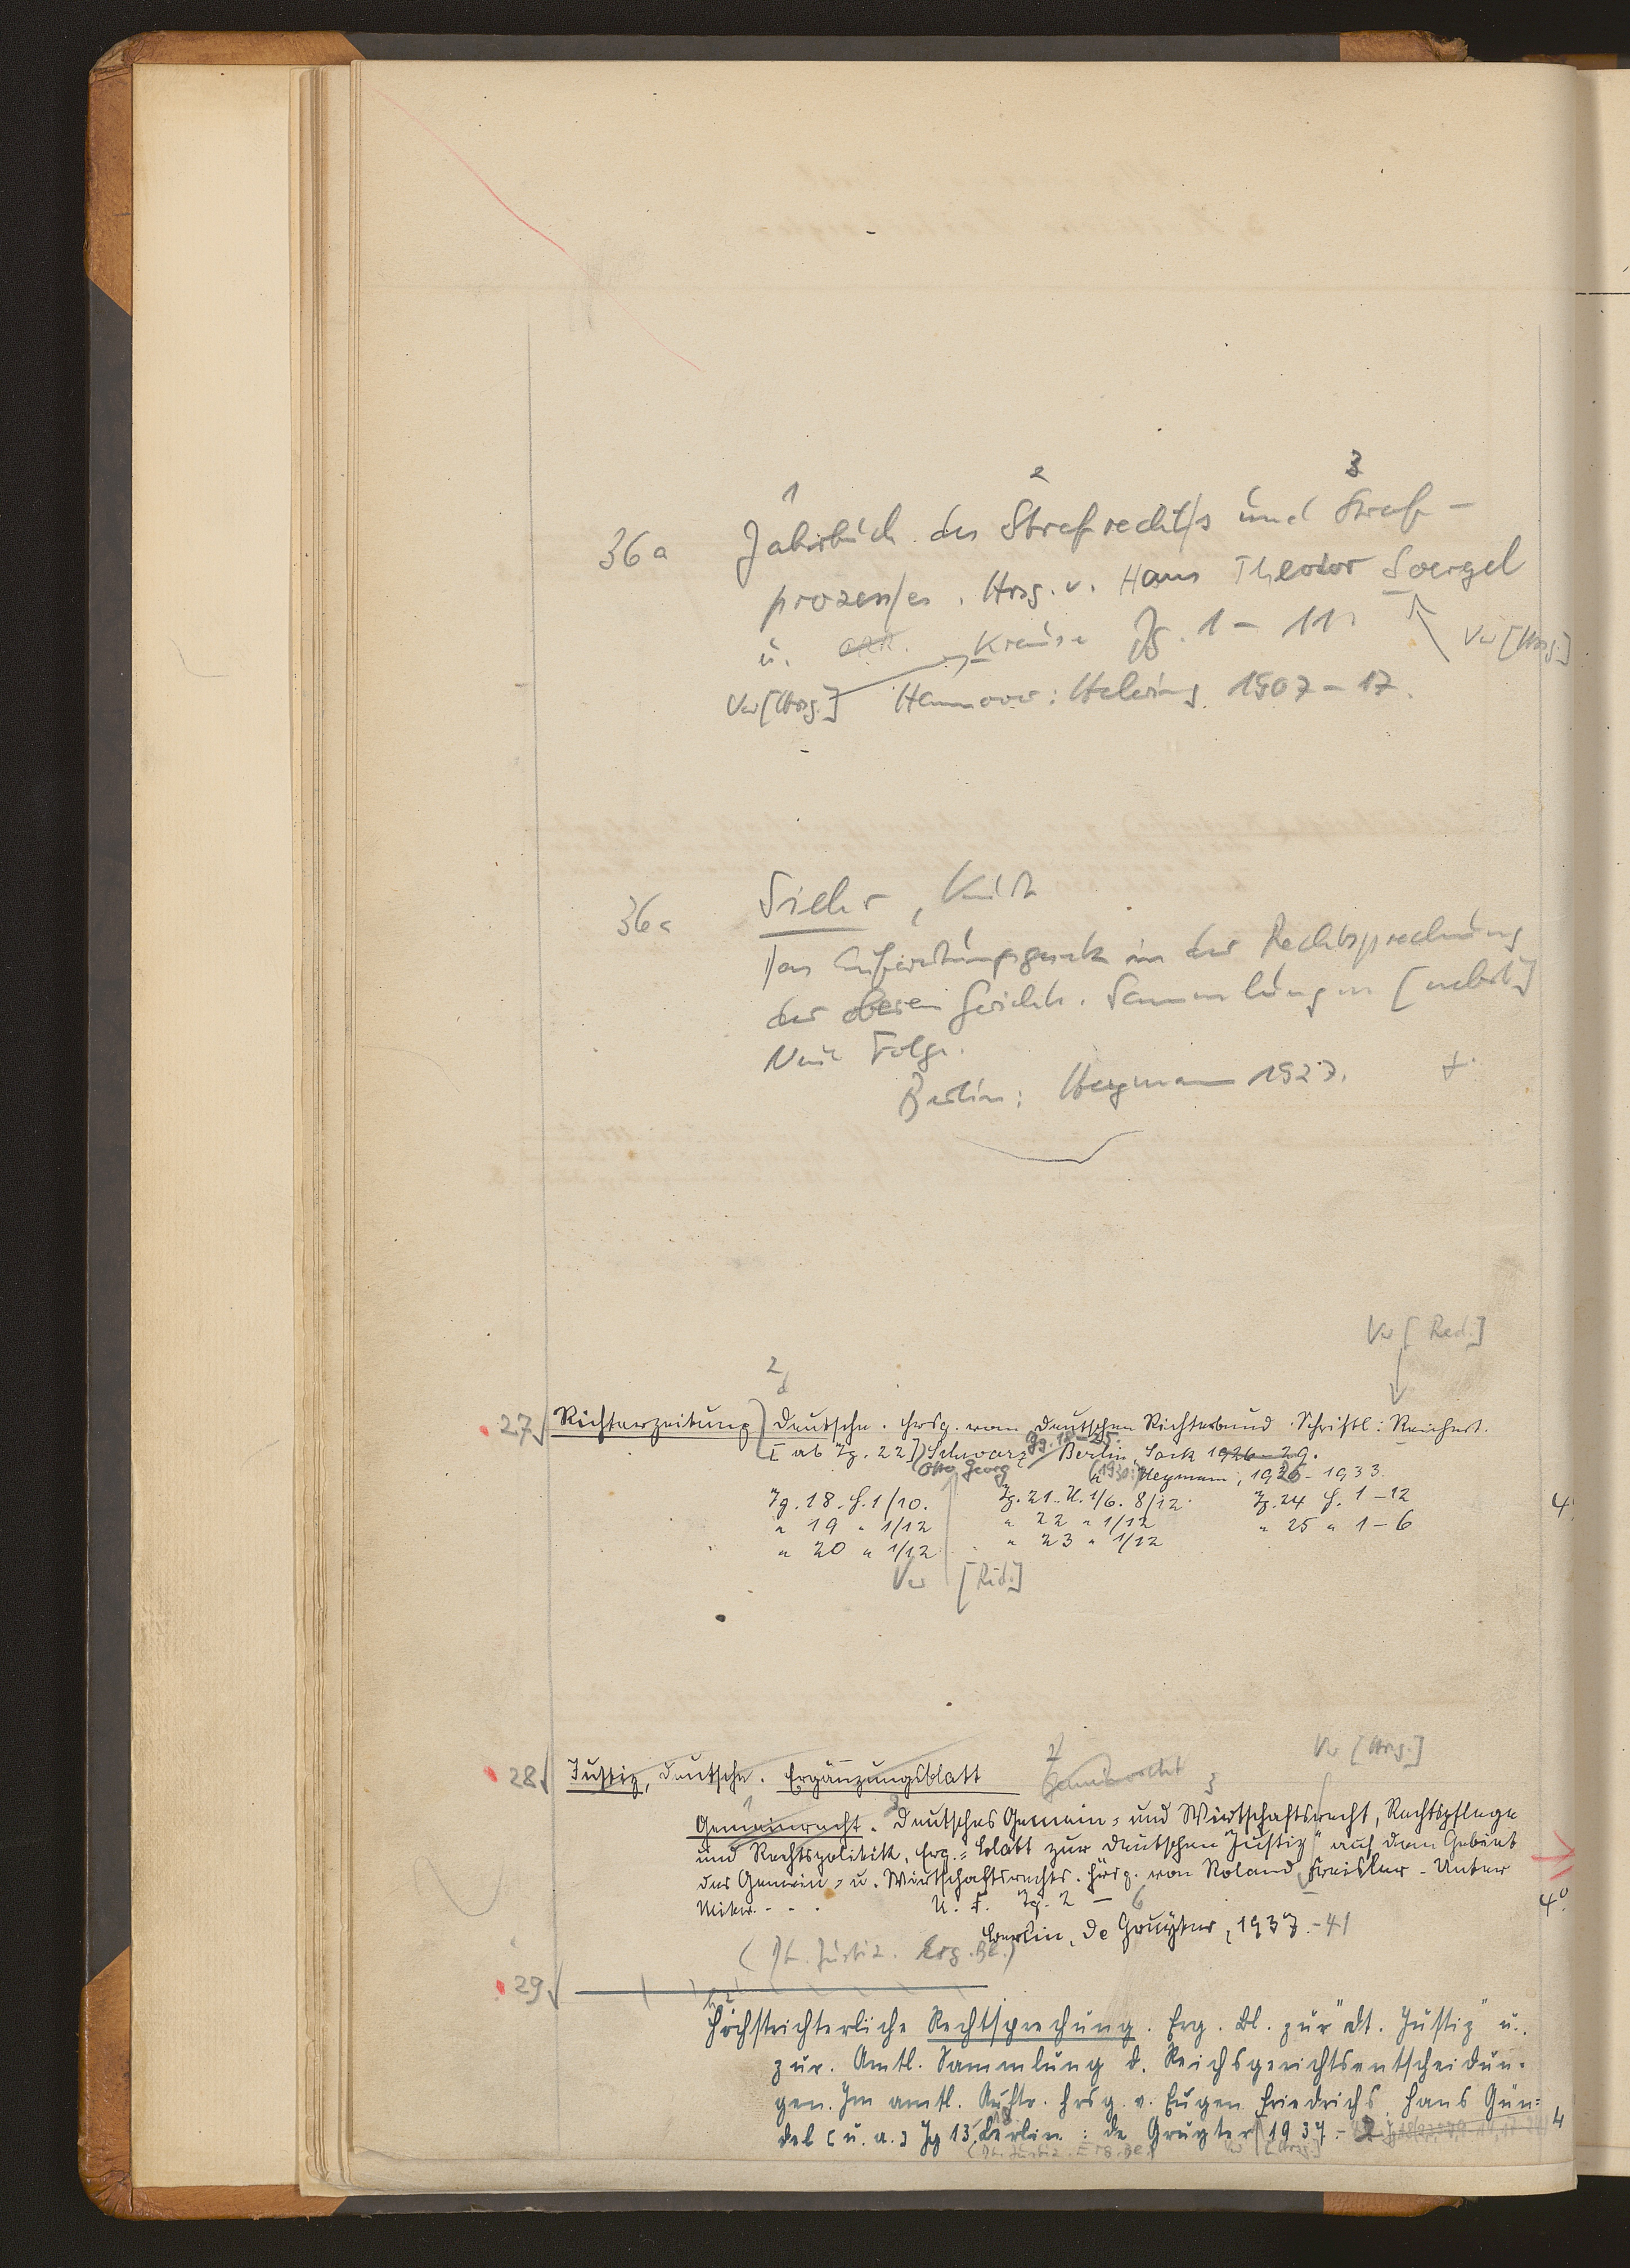 1 2 3
36a Jahrbuch des Strafrechts und Straf-
prozesses. Hrsg. v. Hans Theodor Soergel
u. Krause Jg. 1 - 11.
Vw [Hrsg.]
Vw [Hrsg.] Hannover: Helwing 1907 - 17.
36a Siehr, Kurt
Das Aufwertungsgesetz in der Rechtsprechung
der oberen Gerichte. Sammlungen [nebst]
Neue Folge.
Berlin: Heymann 1927. +
Vw [Red.]
2
27 Richterzeitung, Deutsche. Hrsg. vom Deutschen Richterbund. Schriftl.: Reichert.
[ab Jg. 22] Schwarz Jg. 18-25. Berlin, Sack 1926-29.
Otto Georg (1930:) Heymann, 1926-1933.
Jg. 18. H. 1/10. Jg. 21. H. 1/6. 8/12. Jg. 24 H. 1-12
" 19 " 1/12 " 22 " 1/12 " 25 " 1-6
" 20 " 1/12 " 23 " 1/12
4°
Vw [Red.]
Vw [Hrsg.]
28 Justiz, Deutsche. Ergänzungsblatt
Gemeinrecht. Deutsches Gemein- und Wirtschaftsrecht, Rechtspflege
und Rechtspolitik. Erg.-Blatt zur "Deutschen Justiz" auf dem Gebiet
des Gemein- u. Wirtschaftsrechts. Hrsg. von Roland Freisler - Unter
Mitw. . . . N. F. Jg. 2 - 6 4°
Berlin, de Gruyter, 1937.-41
(Dt. Justiz. Erg. Bl.)
29
Höchstrichterliche Rechtsprechung. Erg. Bl. zur "Dt. Justiz" u.
zur. Amtl. Sammlung d. Reichsgerichtsentscheidun-
gen. Im amtl. Auftr. hrsg. v. Eugen Friedrichs, Hans Gün-
del [u. a.] Jg 13. Berlin: de Gruyter 1937- 4
(Dt. Justiz. Erg. Bl.) Vw [Hrsg.]